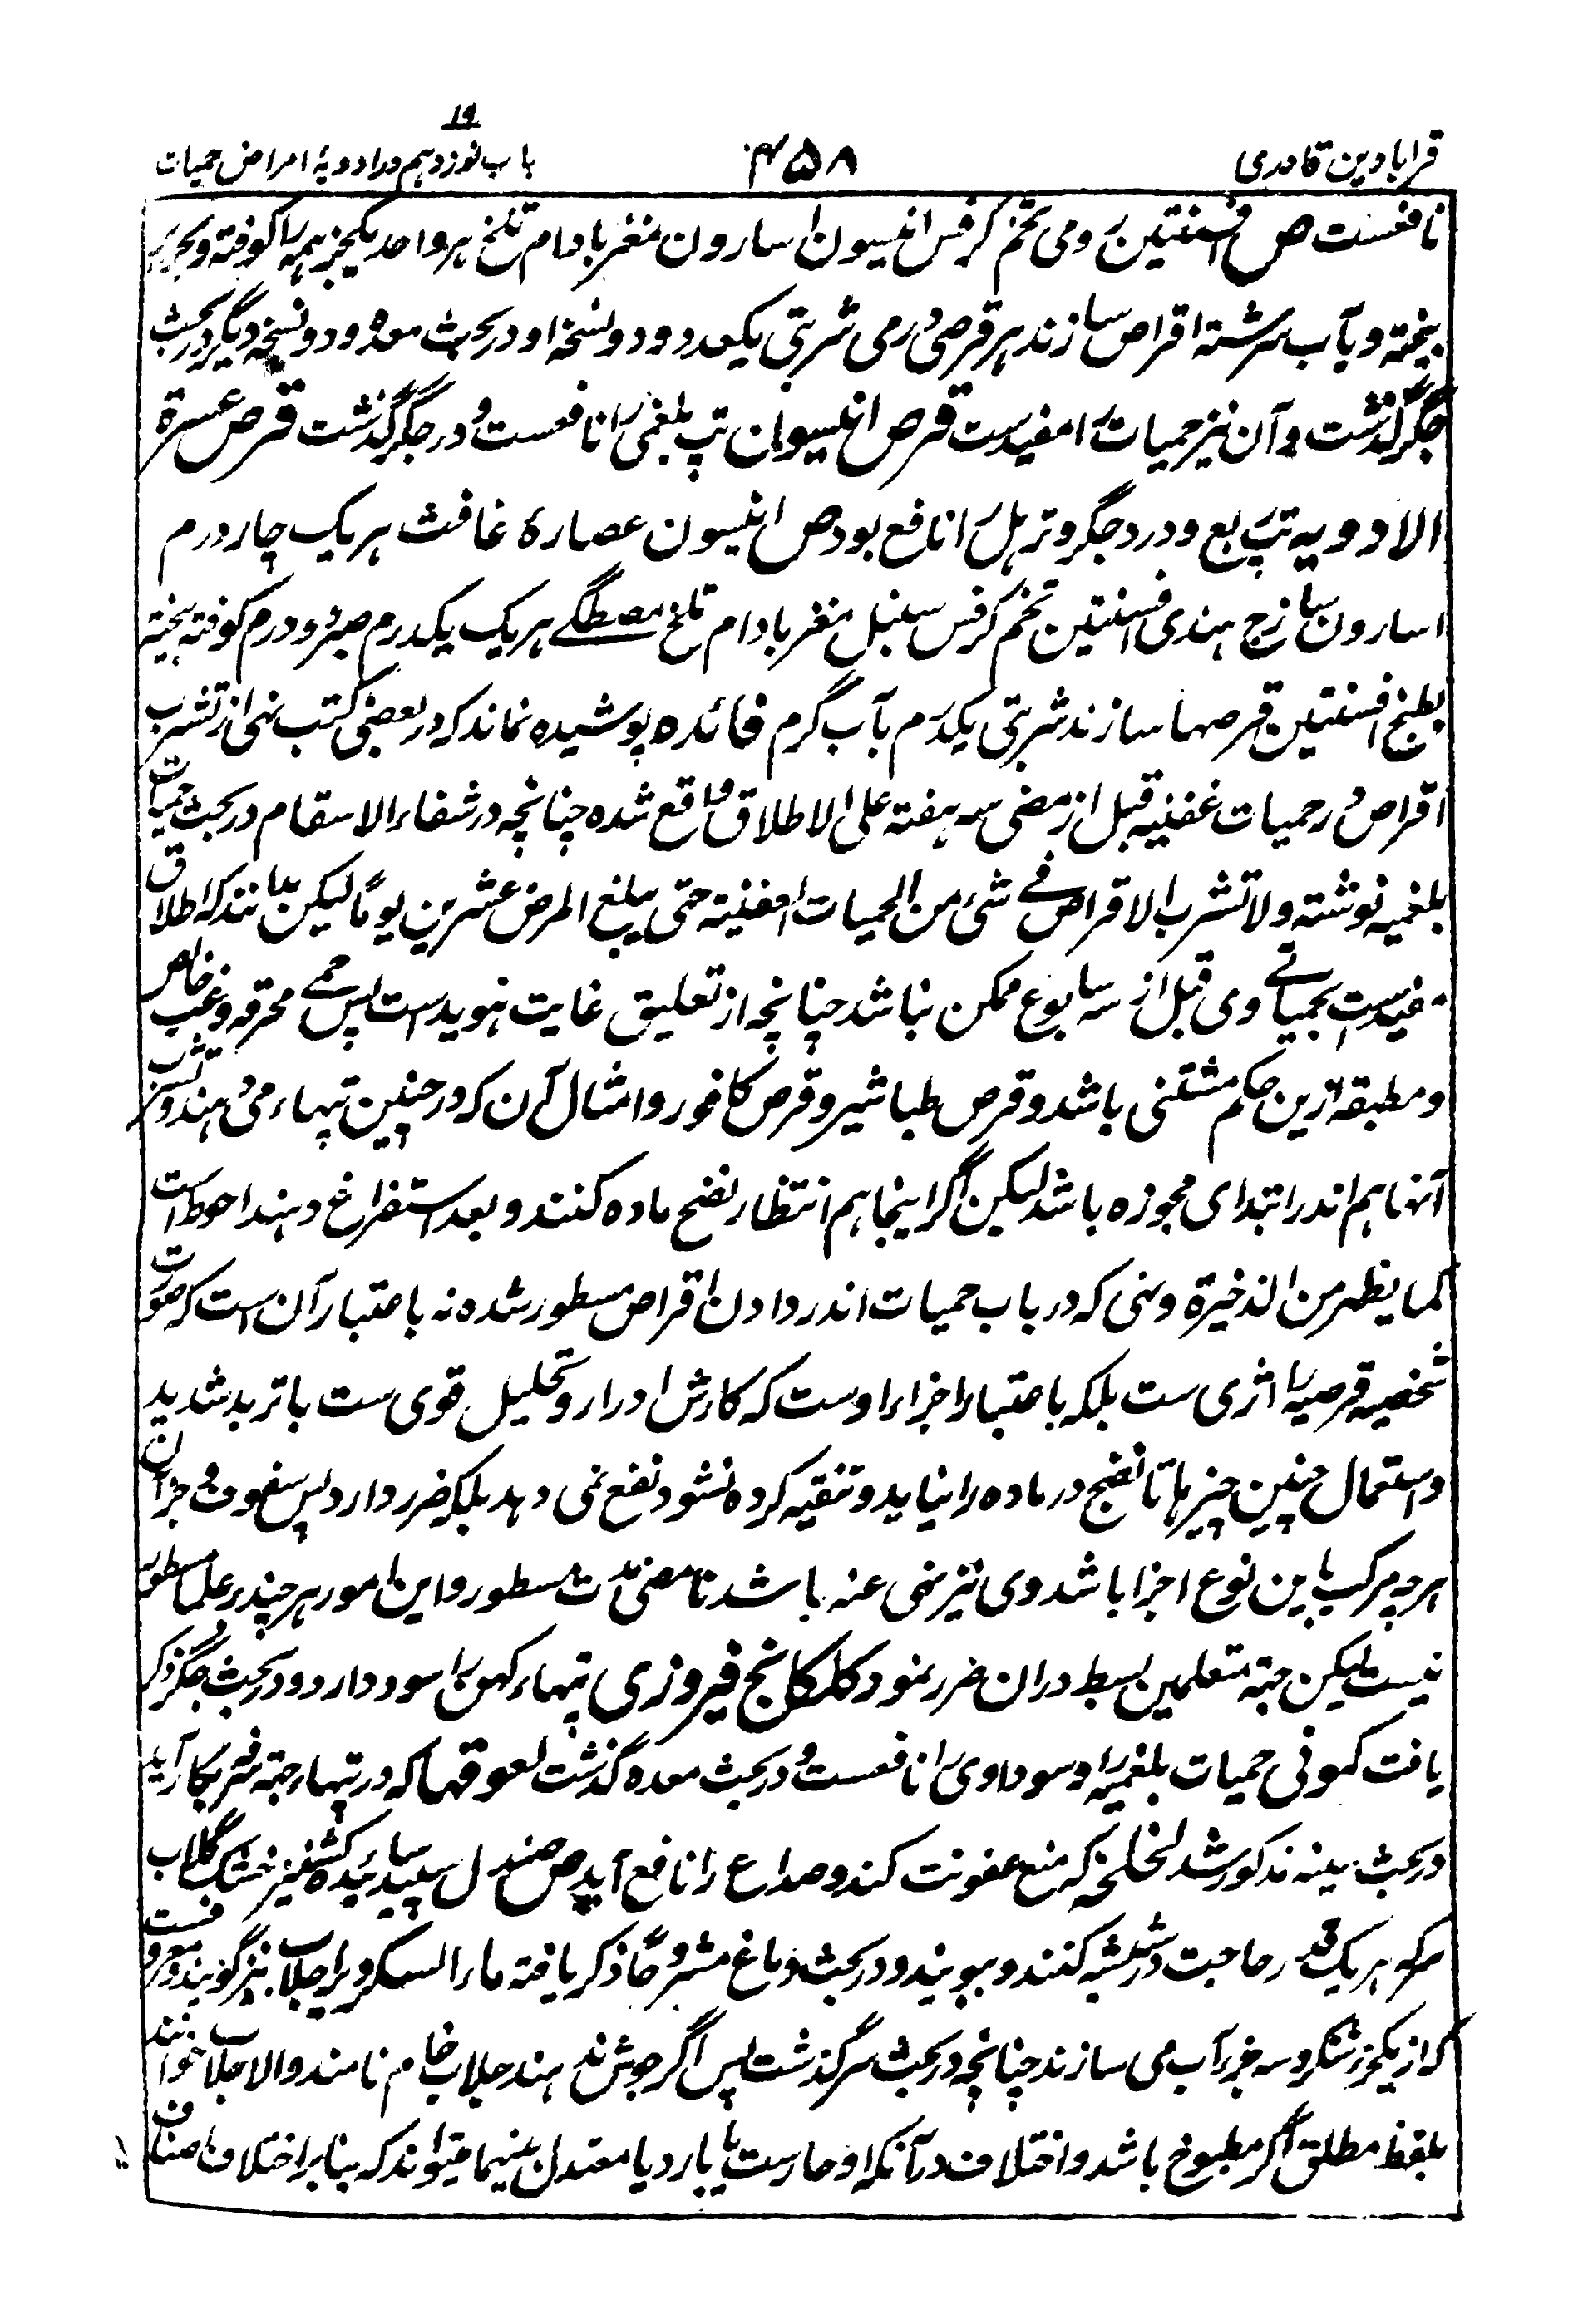 قرابادین قادری
۴۵۸
باب نوزدہم در ادویۂ امراض حمیات
۱۹
نافعست ص افسنتین رومی تخم کرفس انیسون اسارون مغز بادام تلخ ہر واحد یکجز ہمہ را کوفتہ و بحریر
بیختہ و بآب سرشتہ اقراص سازند ہر قرصی درمی شربتی یکعدد و دو نسخہ او در بحث معدہ و دو نسخہ دیگر در بحث
جگر گذشت و آن نیز حمیات را مفیدست قرص انیسون تپ بلغمی را نافعست و در جگر گذشت قرص عسرة
الادویہ تپ ربع و درد جگر و ترہل را نافع بود ص انیسون عصارۂ غافث ہر یک چار درم
اسارون سازج ہندی افسنتین تخم کرفس سنبل مغز بادام تلخ مصطگے ہر یک یکدرم صبر دو درم کوفتہ بیختہ
بطبخ افسنتین قرصہا سازند شربتی یکدرم بآب گرم فائدہ پوشیدہ نماند کہ در بعضی کتب نہی از تشرب
اقراص در حمیات عفنیہ قبل از مضی سہ ہفتہ علی الاطلاق واقع شدہ چنانچہ در شفاء الاسقام در بحث حمیات
بلغمیہ نوشتہ ولا تشرب الاقراص فے شئ من الحمیات العفنیة حتی یبلغ المرض عشرین یوماً لیکن بدانند کہ اطلاق
مفیدست بحمیاتے وی قبل از سہ سابوع ممکن نباشد چنانچہ از تعلیق غایت ہویداست پس حمے محرقہ و غب خالص
و مطبقہ ازین حکم مستثنی باشد و قرص طباشیر و قرص کافور و امثال آن کہ در چنین تپہاء می دہند و تشرب
آنہا ہم اندر ابتدای مجوزہ باشد لیکن اگر اینجا ہم انتظار نضج مادہ کنند و بعد استفراغ دہند احوط است
کما یظہر من الذخیرة و نہی کہ در باب حمیات اندر دادن اقراص مسطور شدہ نہ باعتبار آن است کہ صورت
شخصیہ قرصیہ را اثری ست بلکہ باعتبار اجزاء اوست کہ کارش ادرار و تحلیل قوی ست با تربد شدید
و استعمال چنین چیزہا تا نضج در مادہ را نیاید و تنقیہ کردہ نشود نفع نمی دہد بلکہ ضرر دارد پس سفوف و جز آن
ہرچہ مرکب باین نوع اجزا باشد وی نیز نہی عنہ باشد تا مضی مدت مسطور و این امور ہر چند بر علما مسطور
نیست لیکن جہتہ متعلمین بسط در ان ضرر نمود کلکلانج فیروزی تپہاء کہن را سود دارد و در بحث جگر ذکر
یافت کمونی حمیات بلغمیہ را و سوداوی را نافعست و در بحث معدہ گذشت لعوقہا کہ در تپہاء جہتہ سرفہ بکار آید
در بحث سینہ مذکور شد لخلخہ کہ منع عفونت کند و صداع را نافع آید ص صندل سپید سائیدہ کشنیز خشک گلاب
سرکہ ہر یک قدر حاجت در شیشہ کنند و ببویند و در بحث دماغ مشروحاً ذکر یافتہ ماء السکر و یرا جلاب نیز گویند و معروفست
کہ از یکجز شکر و سہ جز آب می سازند چنانچہ در بحث سر گذشت پس اگر جوش ندہند جلاب خام نامند والا جلاب خوانند
بلفظ مطلق اگر مطبوخ باشد و اختلاف در آنکہ او حارست یا بارد یا معتدل مینماید میتواند کہ بنابر اختلاف اصناف